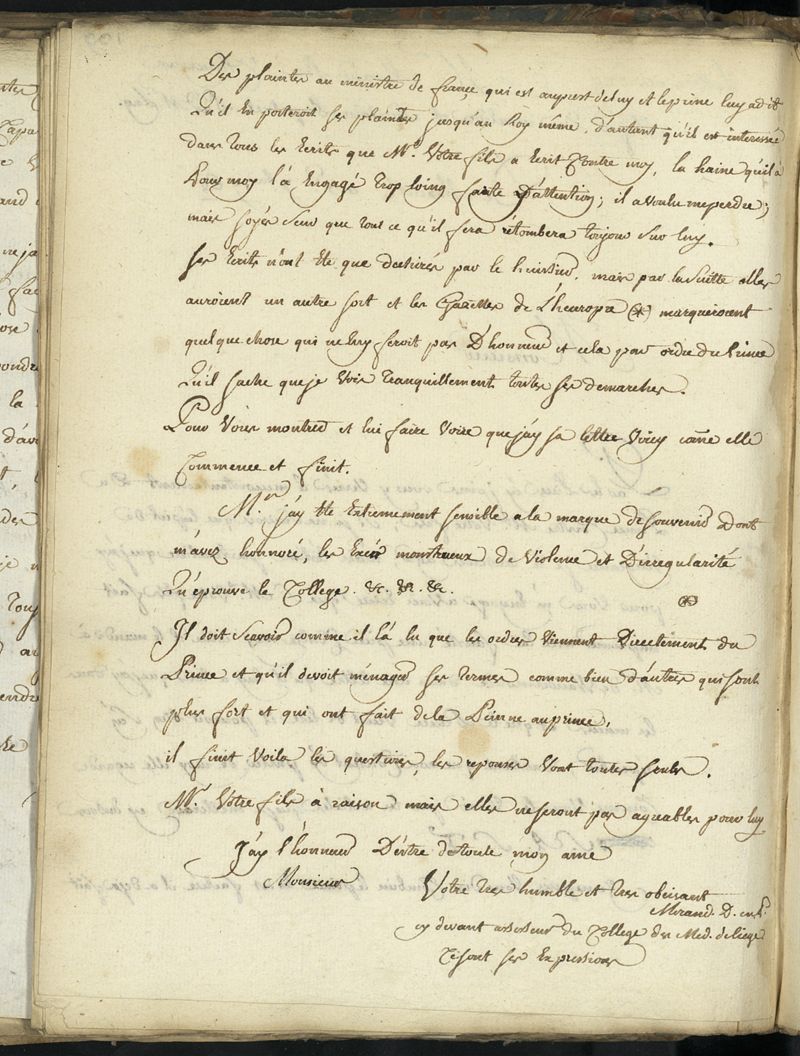 Des plaintes au ministre de france qui est aupres de luy et le prince luy a dit
qu'il en porteroit ses plaintes jusqu'au Roy même, d'autant qu'il est interessé
dans tous les Ecrits que Mr. Votre fils a Ecrit Contre moy, la haine qu'il a
pour moy l'a Engagé trop loing faute D'attention; il a voulu me perdre;
mais soyés seur que tout ce qu'il fera rétombera toujour sur luy.
ses Ecrits n'ont Ete que dechirés par le huissier, mais par la suitte elles
auroient un autre sort et les Gazettes de L'heurope (*) marqueroient
quelque chose qui ne luy feroit pas D'honneur et cela par ordre du Prince
Qu'il sache que je Vois tranquillement toutes ses demarches.
Pour Vous montrer et lui faire Voire que j'ay sa lettre Voicy comme elle
Commence et finit.
Mr. j'ay Ete Extremement sensible a la marque de souvenir dont
m'avez honnoré, les Excès monstrueux de Violence et D'irregularité
Qu'éprouve le College. &c. &c. &c.
(*)
Il doit scavoir comme il l'a lu que les ordres Viennent Directement du
Prince et qu'il devoit ménager ses termes comme bien d'autres qui sont
plus fort et qui ont fait de la Peinne au prince,
il finit Voila les questions, les reponses Vont toutes seules.
Mr. Votre fils à raison mais elles ne seront pas agreables pour luy
J'ay l'honneur D'être de toute mon ame
Monsieur
Votre tres humble et tres obeissant
Mirand. D. en
cy devant assesseur du College des Med. de Liege
Ce sont ses Expressions